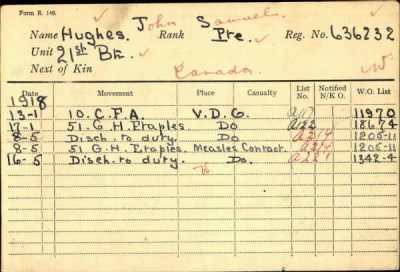 Form R. 149.
John Samuel
Name Hughes. Rank Pte. Reg. No. 636232
Unit 21st Bn.
Next of Kin Canada W
Date Movement Place Casualty List No. Notified N/K O. W.O. List
1918
13-1 10. C.F.A. V.D.G. A117 11970
17-1 51. G.H. Etaples. Do A122 18674
8-5 Disch. to duty. Do A214 1205-11
8-5 51 G.H. Etaples. Measles Contact. A214 1205-11
16-5 Disch. to duty. Do. A221 1342-4